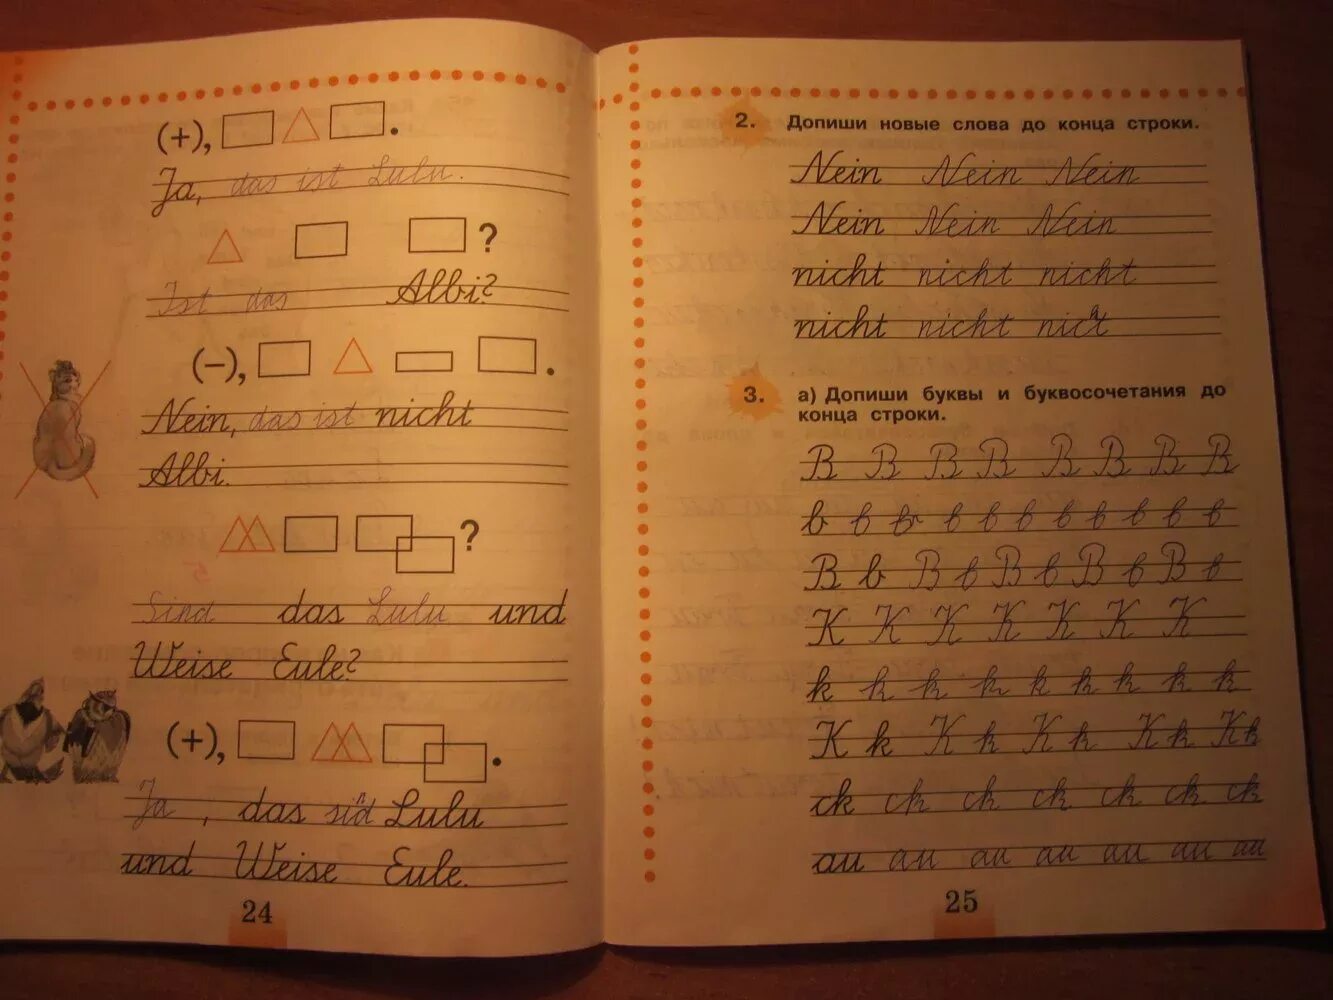 (+), .
Ja, das ist Lulu.
?
Ist das Albi?
(–), .
Nein, das ist nicht
Albi.
?
Sind das Lulu und
Weise Eule?
(+), .
Ja , das sind Lulu
und Weise Eule.
24
2. Допиши новые слова до конца строки.
Nein Nein Nein
Nein Nein Nein
nicht nicht nicht
nicht nicht nicht
3. а) Допиши буквы и буквосочетания до
конца строки.
B B B B B B B B
b b b b b b b b b b
B b B b B b B b B b
K K K K K K K
k k k k k k k k k
K k K k K k K k K k
ck ck ck ck ck ck ck
au au au au au au au
25